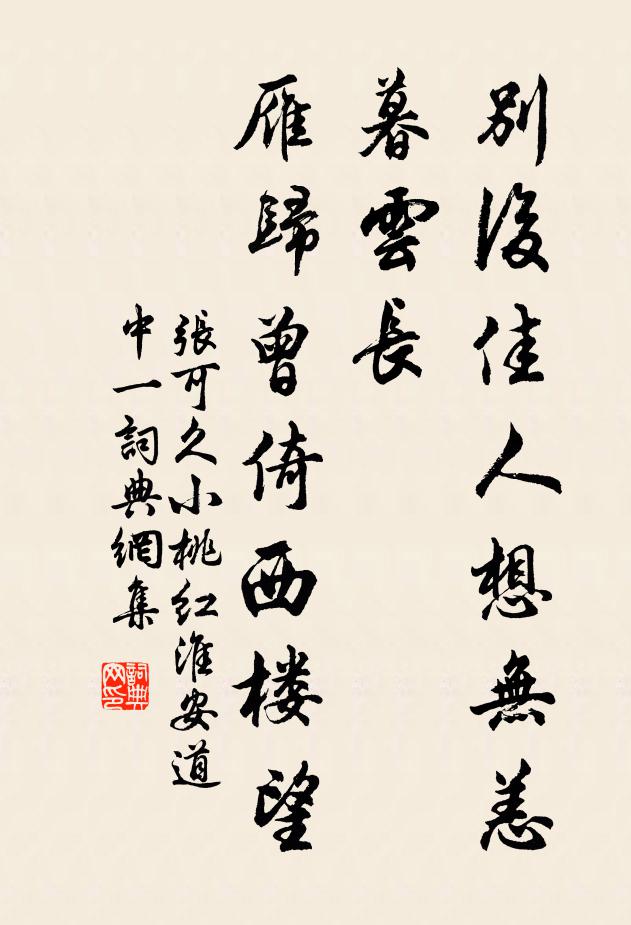 別後佳人想無恙
暮雲長
雁歸曾倚西楼望
張可久小桃红淮安道
中一詞典網集
詞典网印